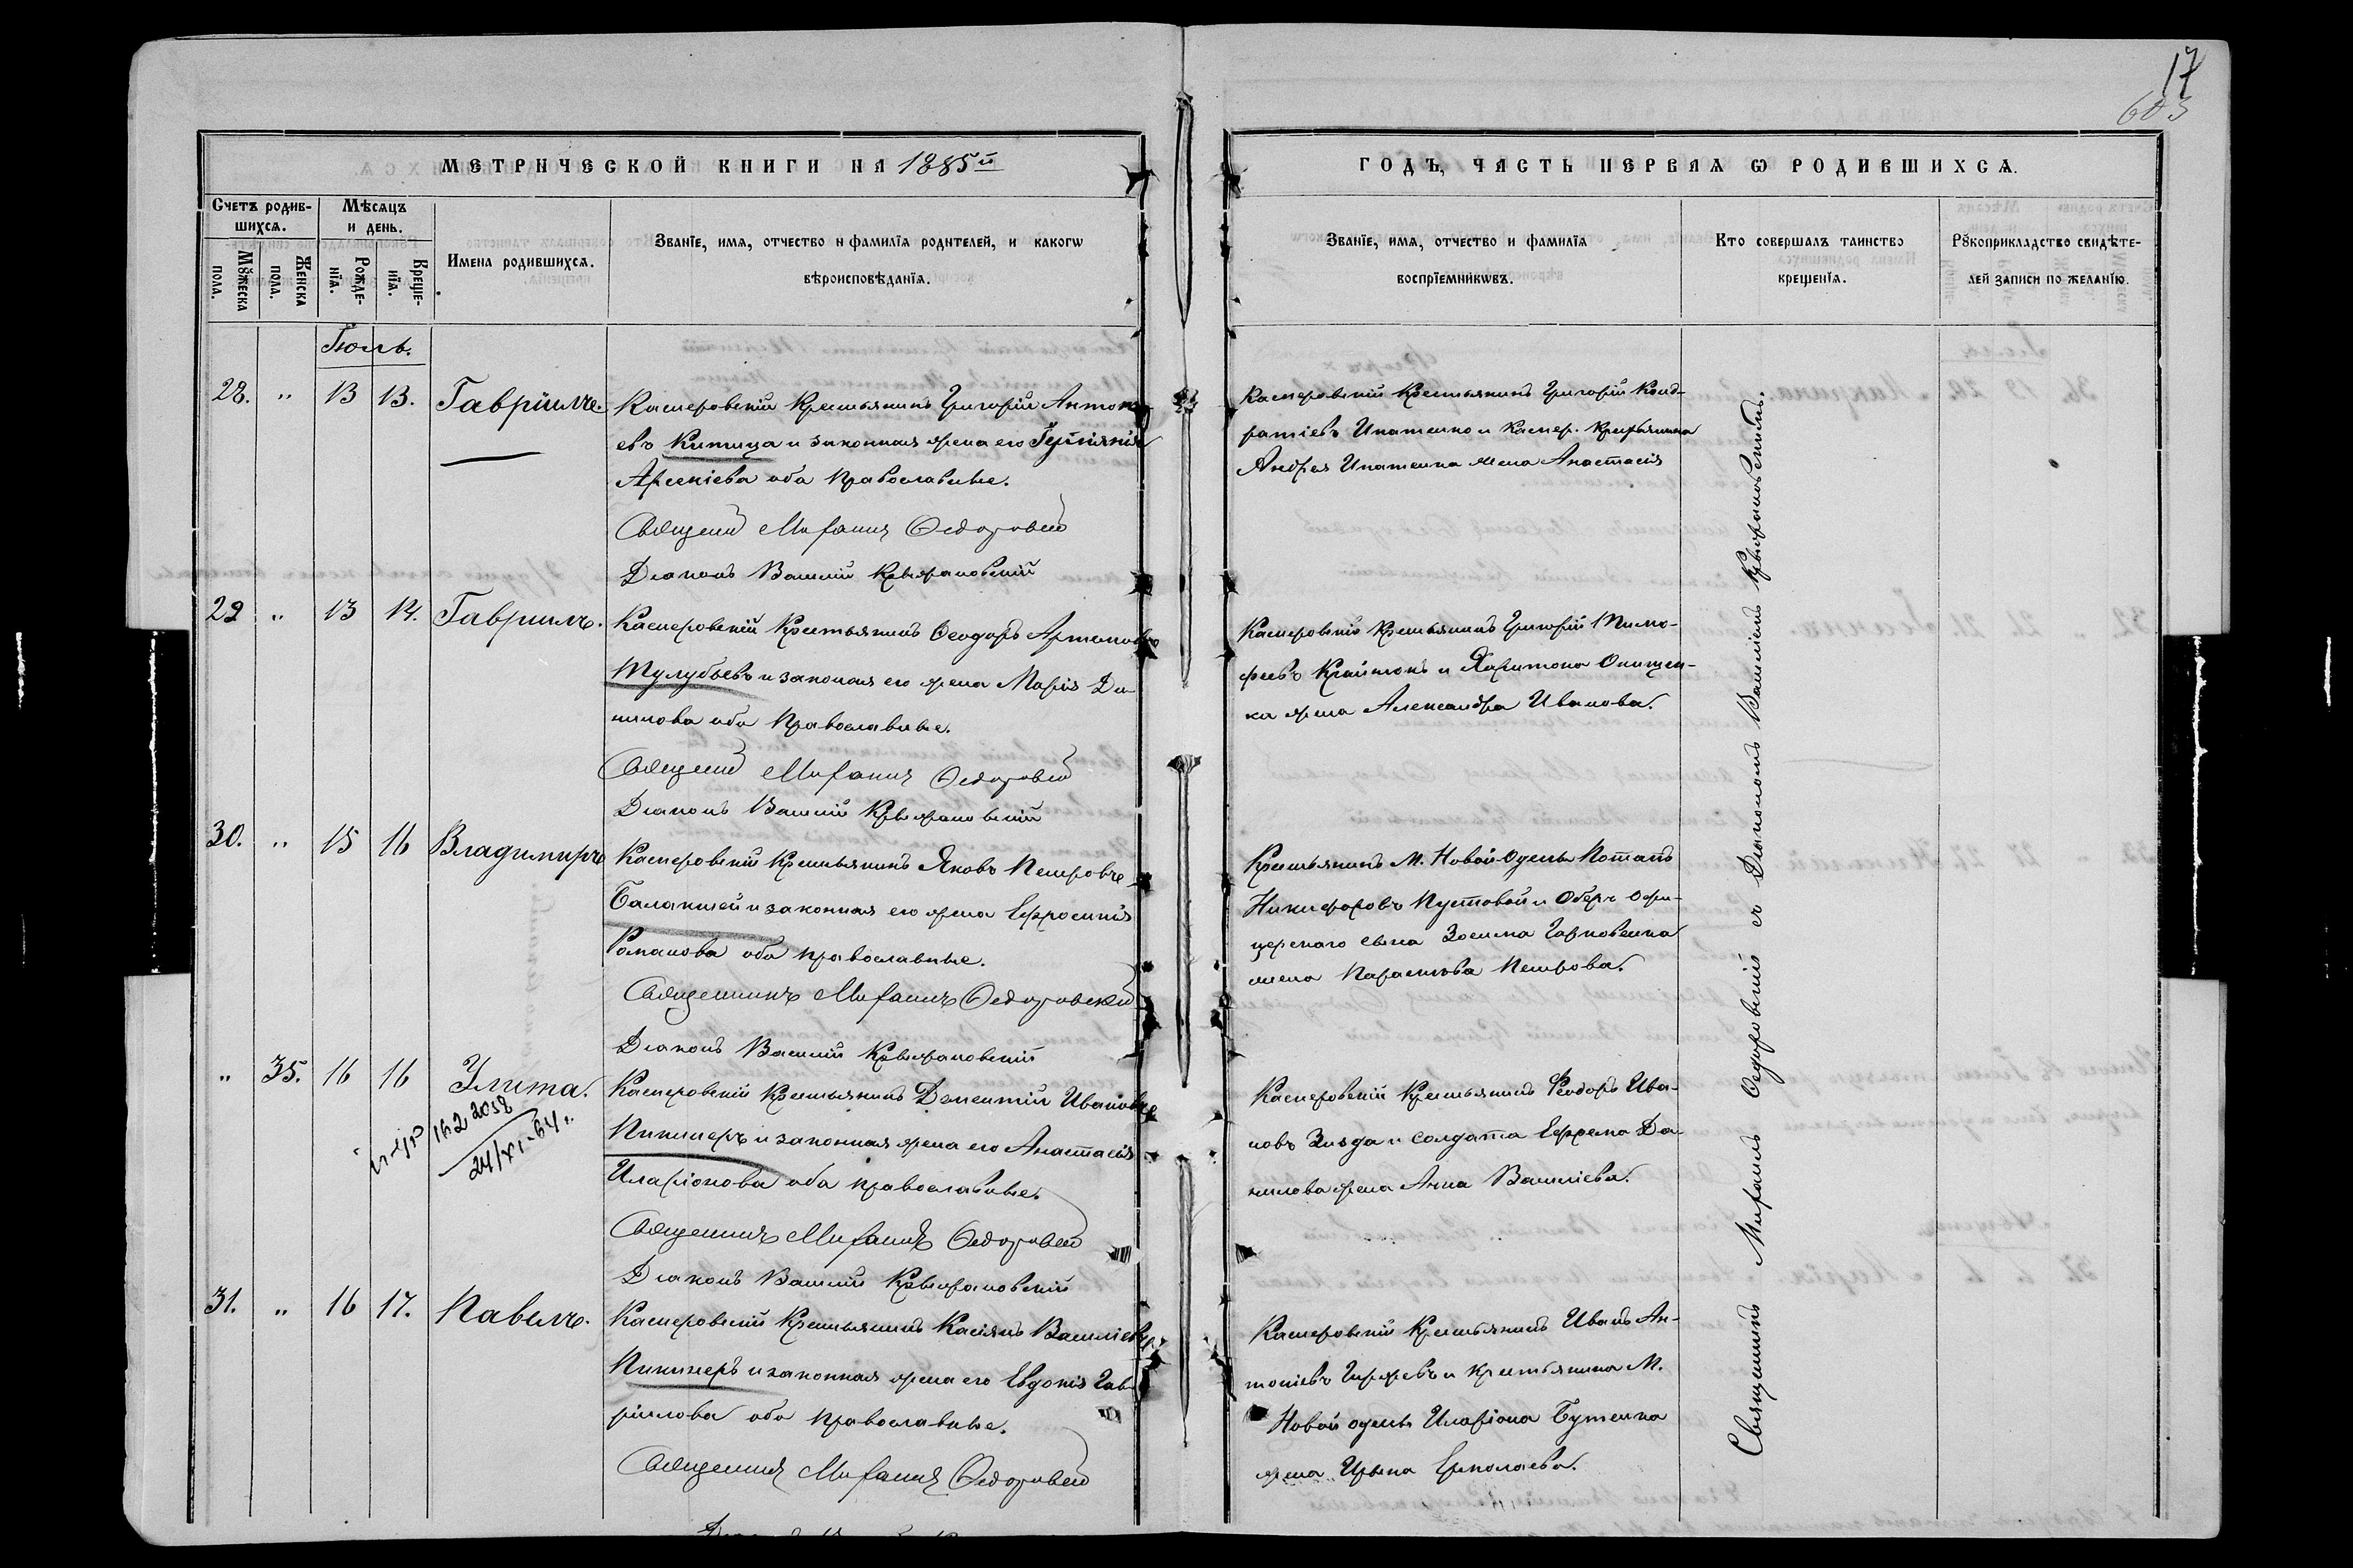 17
603
МЕТРИЧЕСКОЙ КНИГИ НА 1885й
ГОДЪ, ЧАСТЬ ПЕРВАЯ Ѡ РОДИВШИХСѦ.
Счетъ родив-
шихсѧ.
Мѣсѧцъ
и день.
Мꙋжеска
пола.
Женска
пола.
Рожде-
нїѧ.
Креще-
нїѧ.
Имена родившихсѧ.
Званїе, имѧ, отчество и фамилїѧ родителей, и какогѡ
вѣроисповѣданїѧ.
Званїе, имѧ, отчество и фамилїѧ
воспрїемникѡвъ.
Кто совершалъ таинство
крещенїѧ.
Рꙋкоприкладство свидѣте-
лей записи по желанїю.
Іюль.
28. " 13 13. Гавріилъ.
Касперовскій Крестьянинъ Григорій Антонь
евъ Китица и законная жена его
Арсеніева оба Православные.
Священ Мифаилъ Федоровскій
Діаконъ Василій Крыжановскій
Касперовскій Крестьянинъ Григорій Конд-
ратіевъ Ипатенко и Каспер. Крестьянина
Андрея Ипатенка жена Анастасія
29 " 13 14. Гавріилъ.
Касперовскій Крестьянинъ Ѳеодоръ Артемовъ
Тулубьевъ и законная его жена Марія Да-
нилова оба Православные.
Священ Мифаилъ Федоровскій
Діаконъ Василій Крыжановскій
Касперовскій Крестьянинъ Григорій Тимо-
феевъ и Харитона Онищен-
ка жена Александра Иванова.
30. " 15 16 Владимиръ
Касперовскій Крестьянинъ Яковъ Петровъ
Балакшей и законная его жена Ефросинія
Романова оба православные.
Священникъ Мифаилъ Федоровскій
Діаконъ Василій Крыжановскій
Крестьянинъ М. Новой-Одессы Потапъ
Никифоровъ Пустовой и Оберъ офи-
церскаго сына Зосима
жена Параскева Петрова.
" 35. 16 16 Улита.
162 2058
24/XI-64г.
Касперовскій Крестьянинъ Дементій Ивановъ
Пикинеръ и законная жена его Анастасія
Иларіонова оба православные.
Священникъ Мифаилъ Федоровскій
Діаконъ Василій Крыжановскій
Касперовскій Крестьянинъ Ѳеодоръ Ива-
новъ и солдата Ефрема Да-
нилова жена Анна Василіева.
31. " 16 17. Павелъ.
Касперовскій Крестьянинъ Касіянъ Василіевъ
Пикинеръ и законная жена его Евдокія Гав-
ріилова оба Православные.
Священникъ Мифаилъ Федоровскій
Касперовскій Крестьянинъ Иванъ Ан-
тоніевъ и крестьянина М.
Новой одессы Иларіона Бутенка
жена Ирина Ермолаева.
Священникъ Мифаилъ Федоровскій съ Діакономъ Василіемъ Крыжановскимъ.